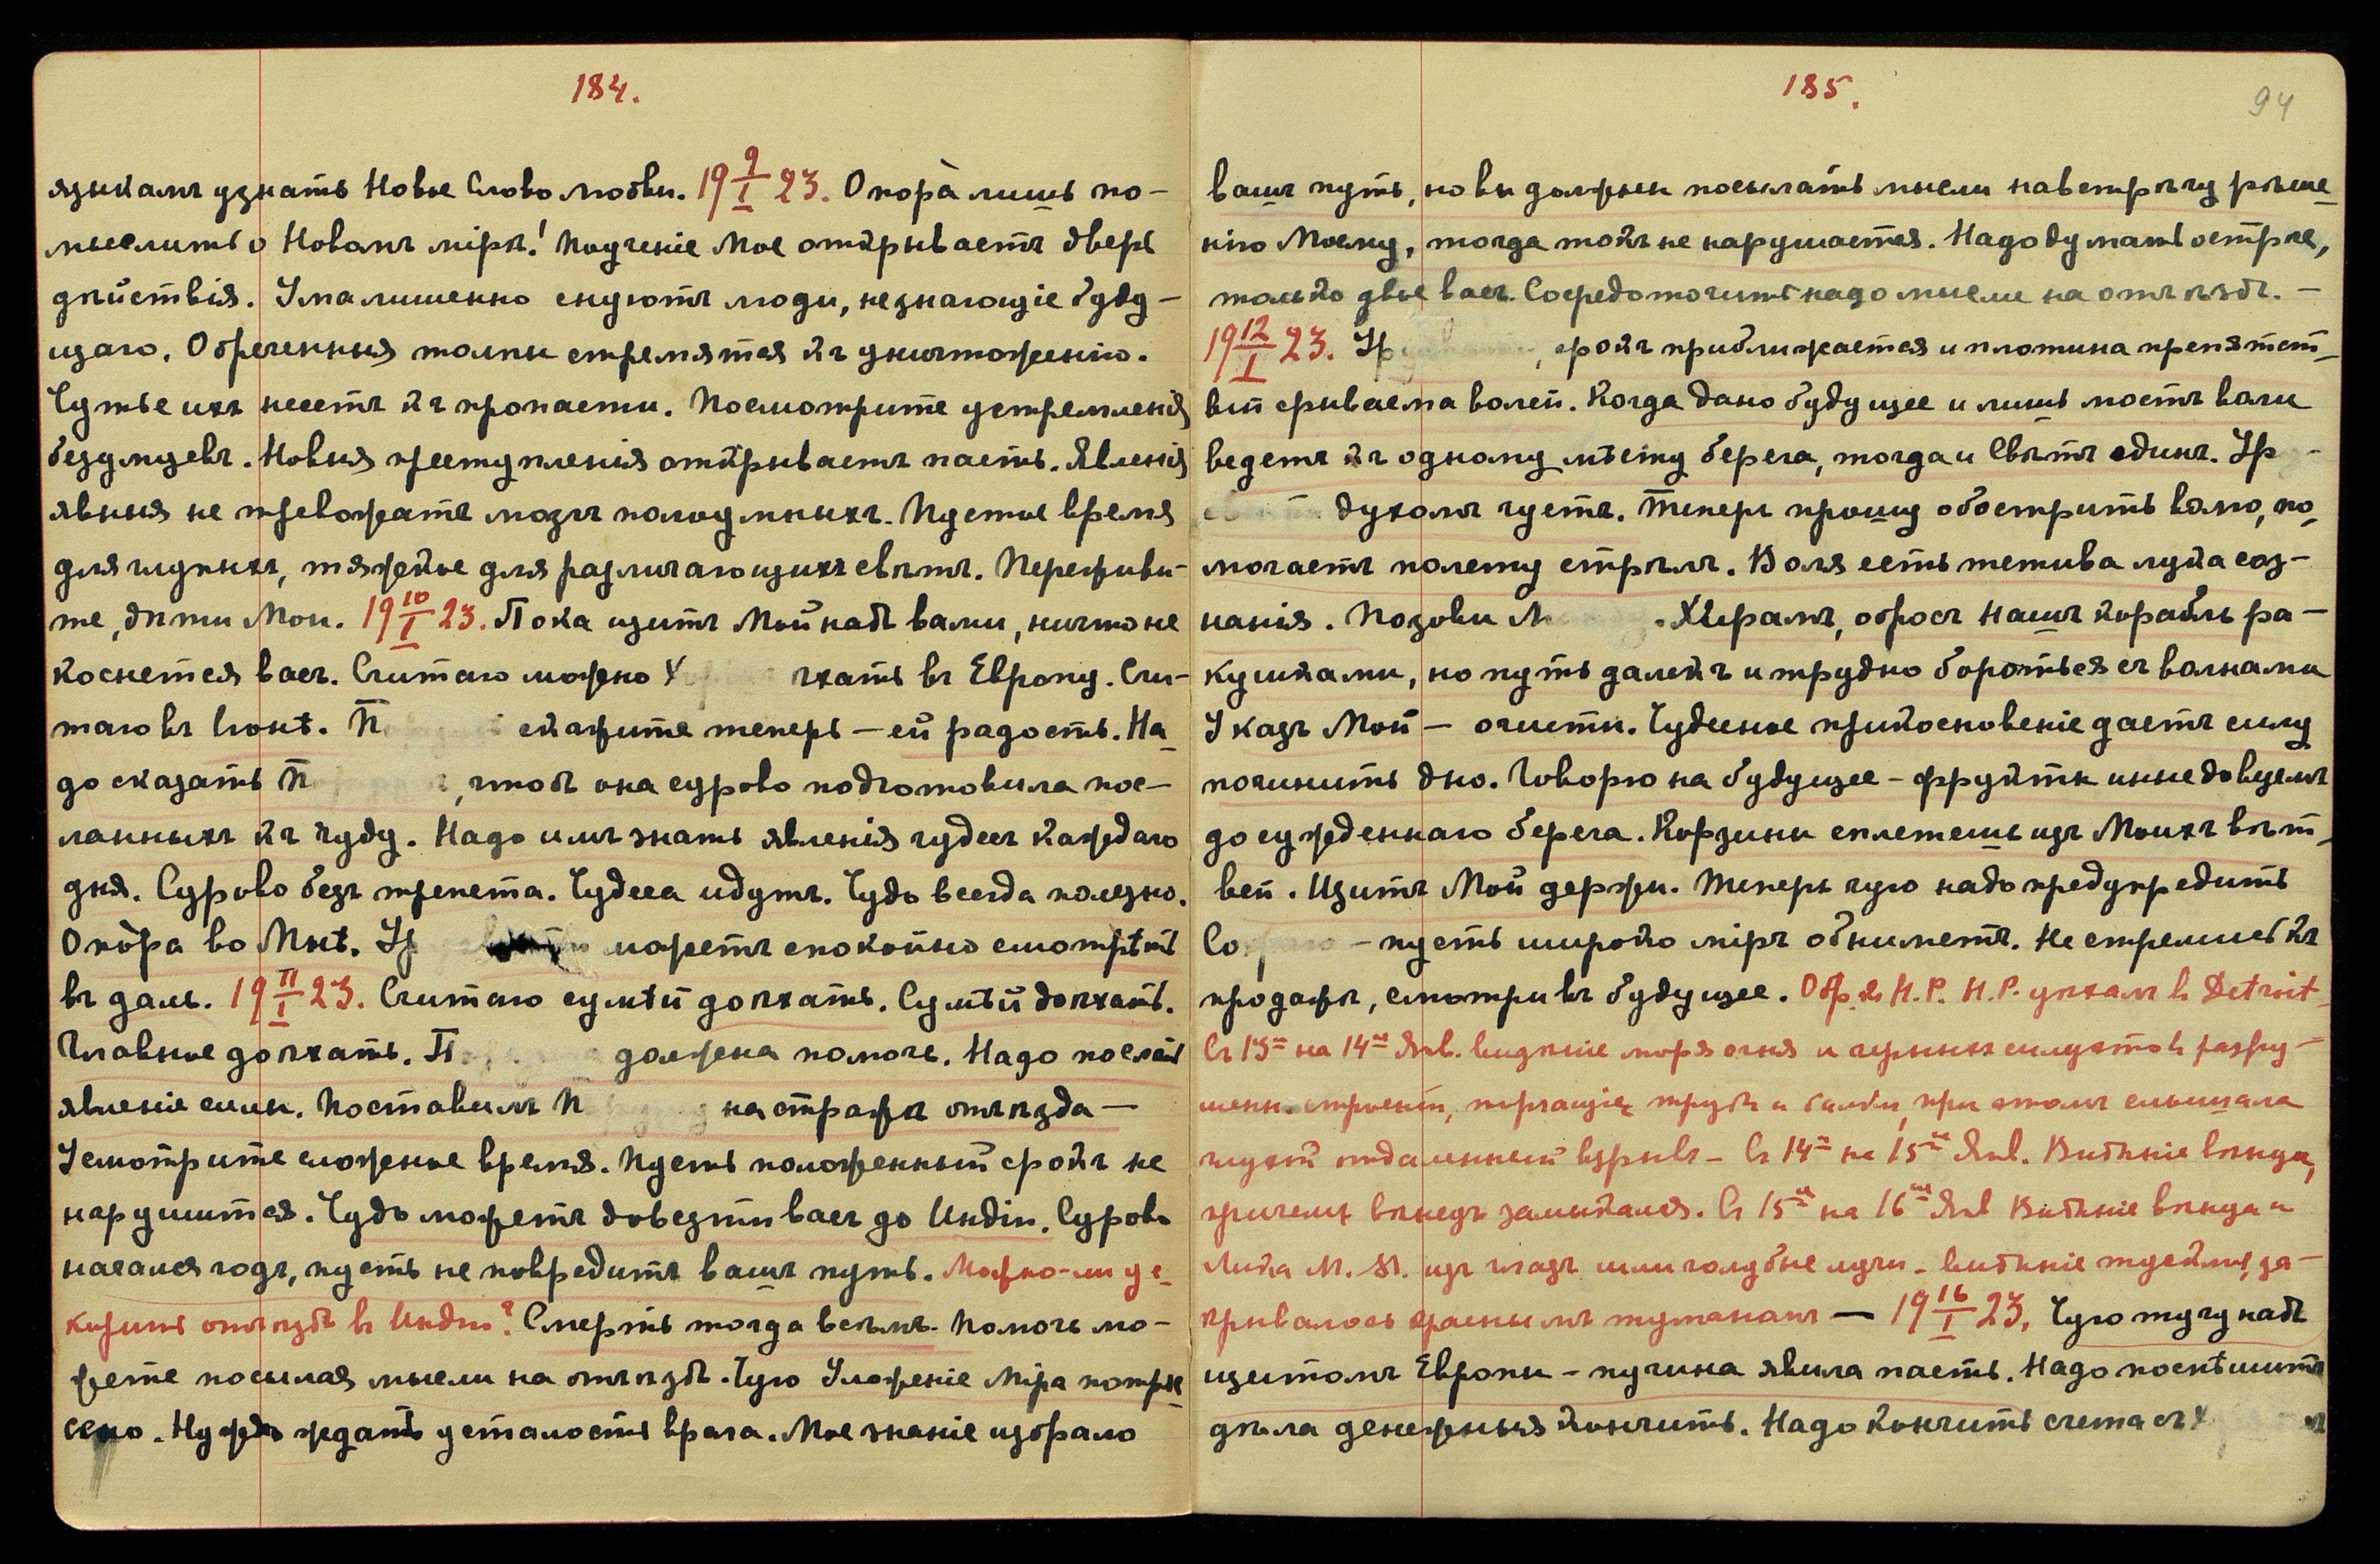 184.
языкамъ узнать Новое Слово любви. 19 9/I 23. Опора̀ лишь по-
мыслить о Новомъ мірѣ! Поученіе Мое открываетъ дверь
дѣйствія. Умалишенно снуютъ люди, незнающіе буду-
щаго. Обреченныя толпы стремятся къ уничтоженію.
Чутье ихъ несетъ къ пропасти. Посмотрите устремленія
безумцевъ. Новыя преступленія открываетъ пасть. Явленія
явныя не тревожатъ мозгъ полоумныхъ. Пустое время
для глупыхъ, тяжкое для различающихъ свѣтъ. Пережиди-
те, дѣти Мои. 19 10/I 23. Пока щитъ Мой надъ вами, ничто не
коснется васъ. Считаю можно Х ѣхать въ Европу. Счи-
таю въ Iюнѣ. П скажите теперь — ей радость. На-
до сказать П , чтобъ она сурово подготовила пос-
ланныхъ къ чуду. Надо имъ знать явленія чудесъ каждаго
дня. Сурово безъ трепета. Чудеса идутъ. Чудо всегда полезно.
Опора во Мнѣ. Ур можетъ спокойно смотрѣть
въ даль. 19 11/I 23. Считаю сумѣй доѣхать. Сумѣй доѣхать.
Главное доѣхать. П должна помочь. Надо послать
явленіе силы. Поставилъ П на стражѣ отъѣзда —
Усмотрите сложное время. Пусть положенный срокъ не
нарушится. Чудо можетъ довезти васъ до Индіи. Сурово
начался годъ, пусть не повредитъ вашъ путь. Можно-ли ус-
корить отъѣздъ въ Индію? Смерть тогда всѣмъ. Помочь мо-
жете посылая мысли на отъѣздъ. Чую Уложеніе Міра потря-
сено. Нужно ждать усталость врага. Мое знаніе избрало
185.
94
вашъ путь, но вы должны посылать мысли навстрѣчу рѣше-
нію Моему, тогда токъ не нарушается. Надо думать острѣе,
только двое васъ. Сосредоточить надо мысли на отъѣздъ. —
19 12/I 23. Ур , срокъ приближается и плотина препятст-
вій срываема волей. Когда дано будущее и лишь мостъ вали
ведетъ къ одному мѣсту берега, тогда и Свѣтъ единъ. Ур-
духомъ чуетъ. Теперь прошу обострить волю, по-
могаетъ полету стрѣлъ. Воля есть тетива лука соз-
нанія. Позови М . Хирамъ, обросъ Нашъ корабль ра-
кушками, но путь далекъ и трудно бороться съ волнами
Указъ Мой — очисти. Чудесное прикосновеніе дастъ силу
починить дно. Говорю на будущее — фрукты иные довеземъ
до сужденнаго берега. Корзины сплетешь изъ Моихъ вѣт-
вей. Щитъ Мой держи. Теперь чую надо предупредить
Со — пусть широко міръ обниметъ. Не стремись къ
продажѣ, смотри въ будущее. Обр. къ Н.Р. Н.Р. уѣхалъ въ Detroit
Съ 13ᵍᵒ на 14ᵒᵉ Янв. видѣніе моря огня и черныхъ силуэтовъ разру-
шен. строеній, торчащіе трубы и балки, при этомъ слышала
глухой отдаленный взрывъ — Съ 14 на 15ᵒᵉ Янв. Видѣніе вѣнца,
причемъ вѣнецъ замыкался. Съ 15 на 16ᵒᵉ Янв Видѣніе вѣнца и
Лика М. М. изъ глазъ шли голубые лучи — видѣніе за-
крывалось краснымъ туманомъ — 19 16/I 23. Чую тучу надъ
щитомъ Европы — пучина явила пасть. Надо поспѣшить
дѣла денежныя кончить. Надо кончить счета съ Х